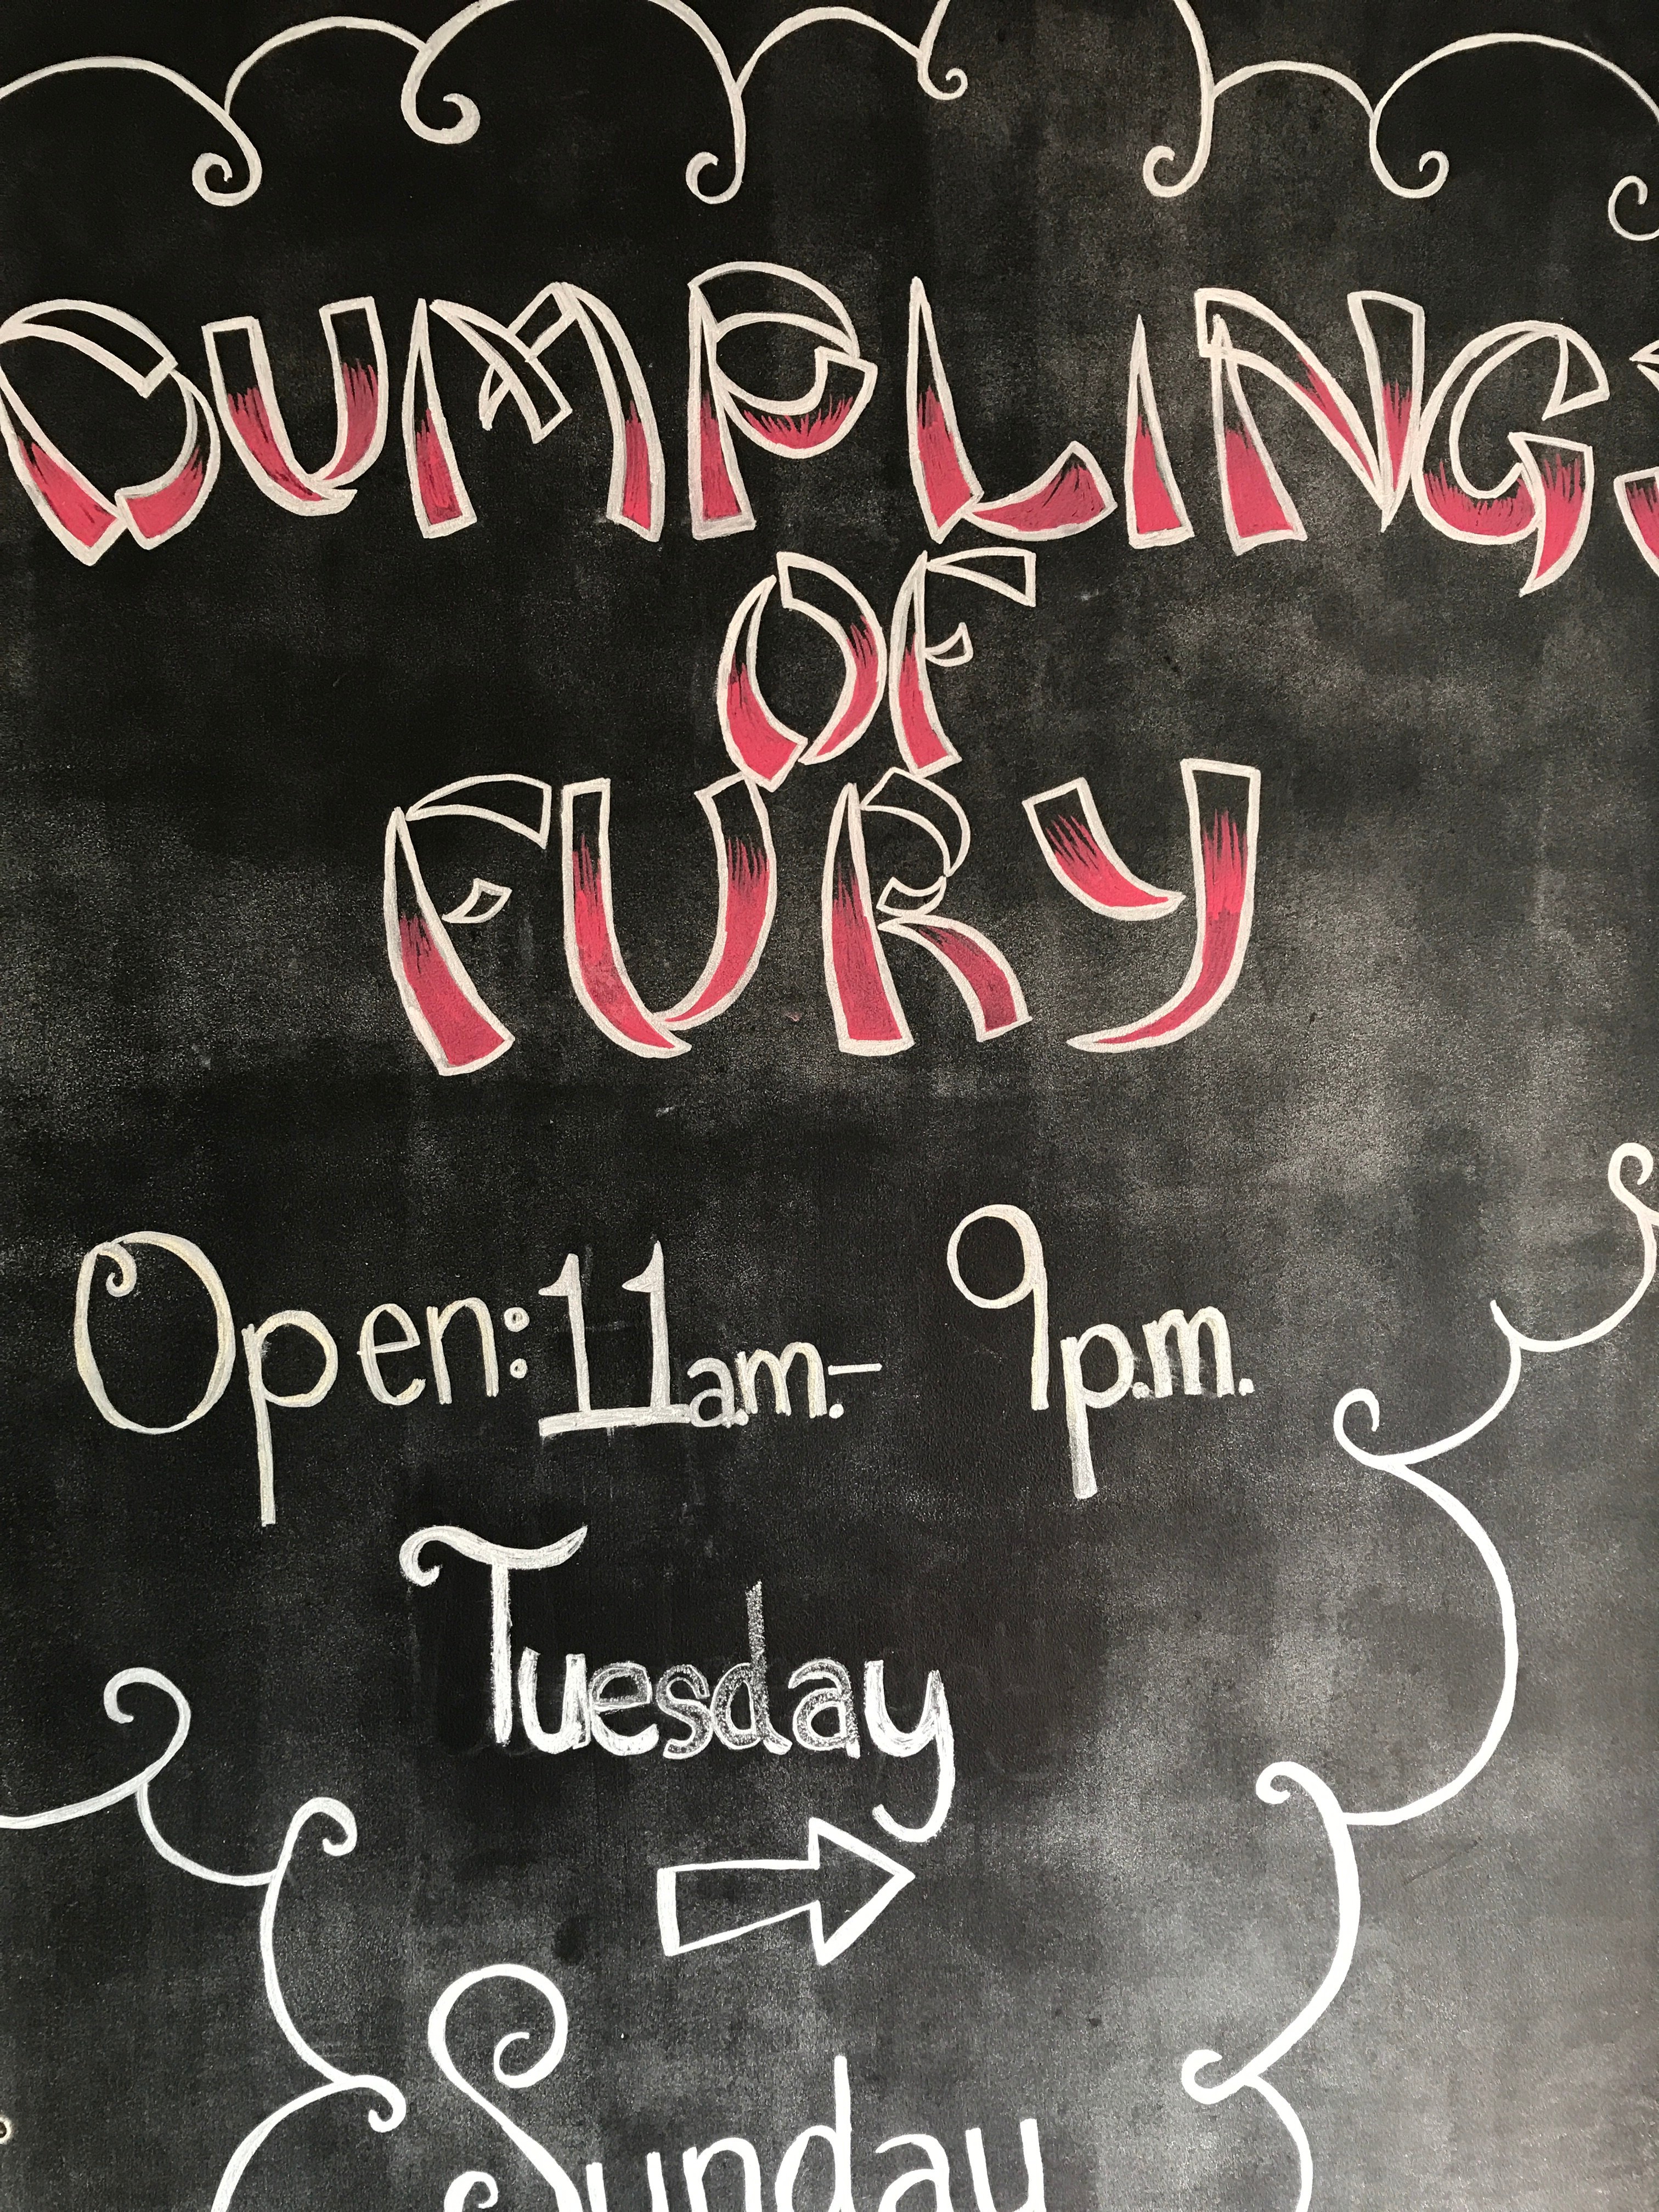 DUMPLINGS
OF
FURY
Open: 11a.m. - 9p.m.
Tuesday
Sunday